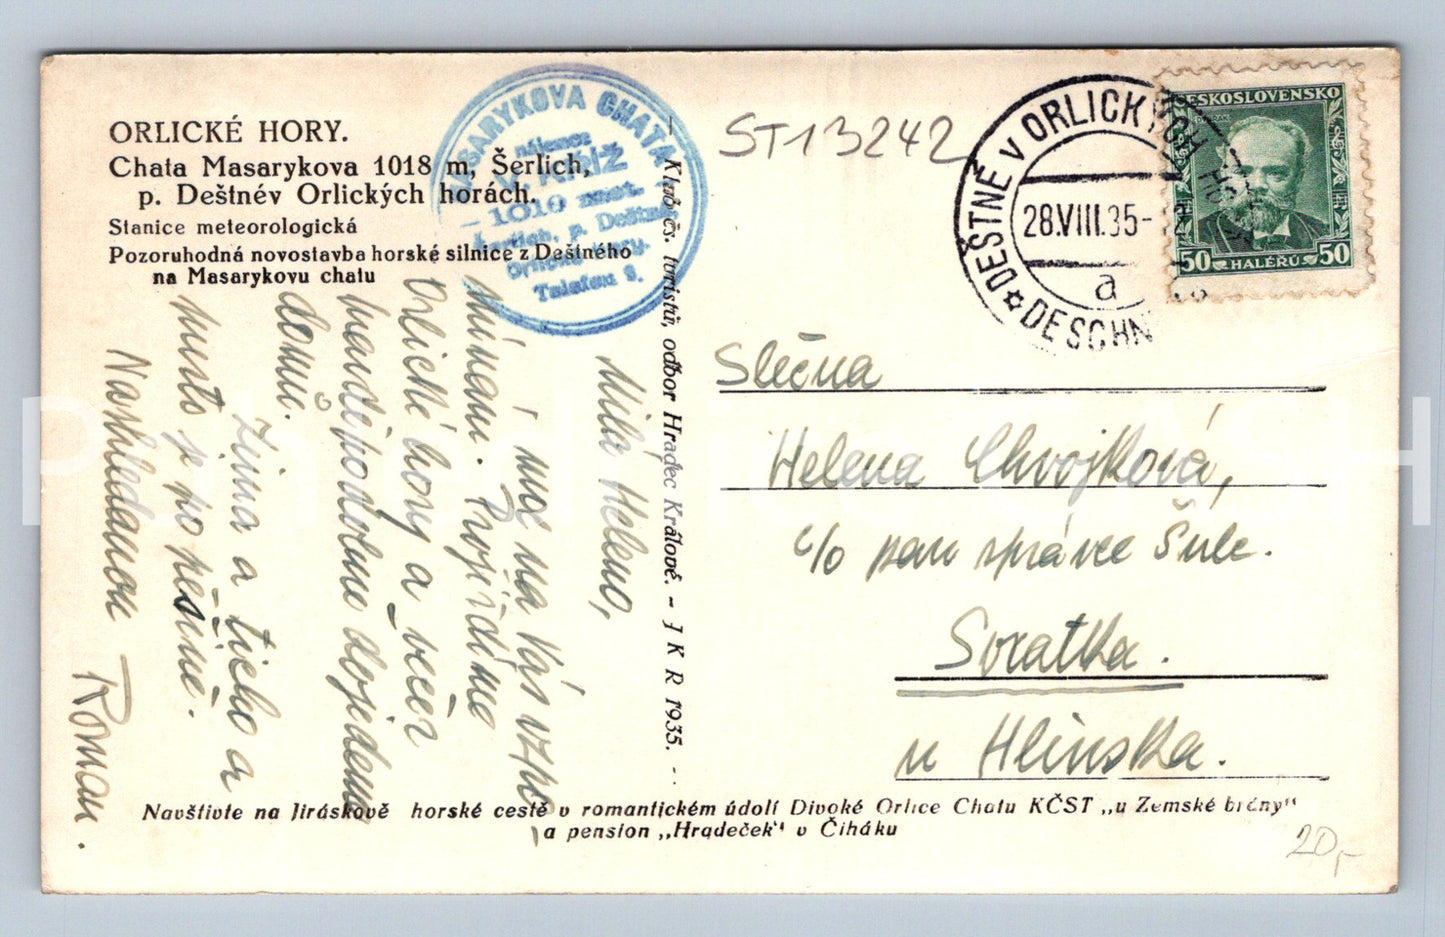 ORLICKÉ HORY.
Chata Masarykova 1018 m, Šerlich,
p. Deštnév Orlických horách.
Stanice meteorologická
Pozoruhodná novostavba horské silnice z Deštného
na Masarykovu chatu
MASARYKOVA CHATA
nájemce
1019 m
Šerlich, p. Deštné
Orlické hory.
Telefon 8.
Klub čs. turistů, odbor Hradec Králové. - J K R 1935.
ST13242
DEŠTNÉ V ORLICKÝCH
28.VIII.35-
a
DESCHN
ČESKOSLOVENSKO
50 HALÉŘŮ 50
Milá Heleno,
má na Vás vzpo
mínám. Projíždíme
Orlické hory a večer
pojedeme
domů.
Zima a ticho a
musto je po pěšině.
Nashledanou
Roman.
Slečna
Helena Chvojková,
c/o pan správce Šulc.
Svratka.
u Hlinska.
Navštivte na Jiráskově horské cestě v romantickém údolí Divoké Orlice Chatu KČST „u Zemské brány"
a pension „Hradeček" v Čiháku
20,-